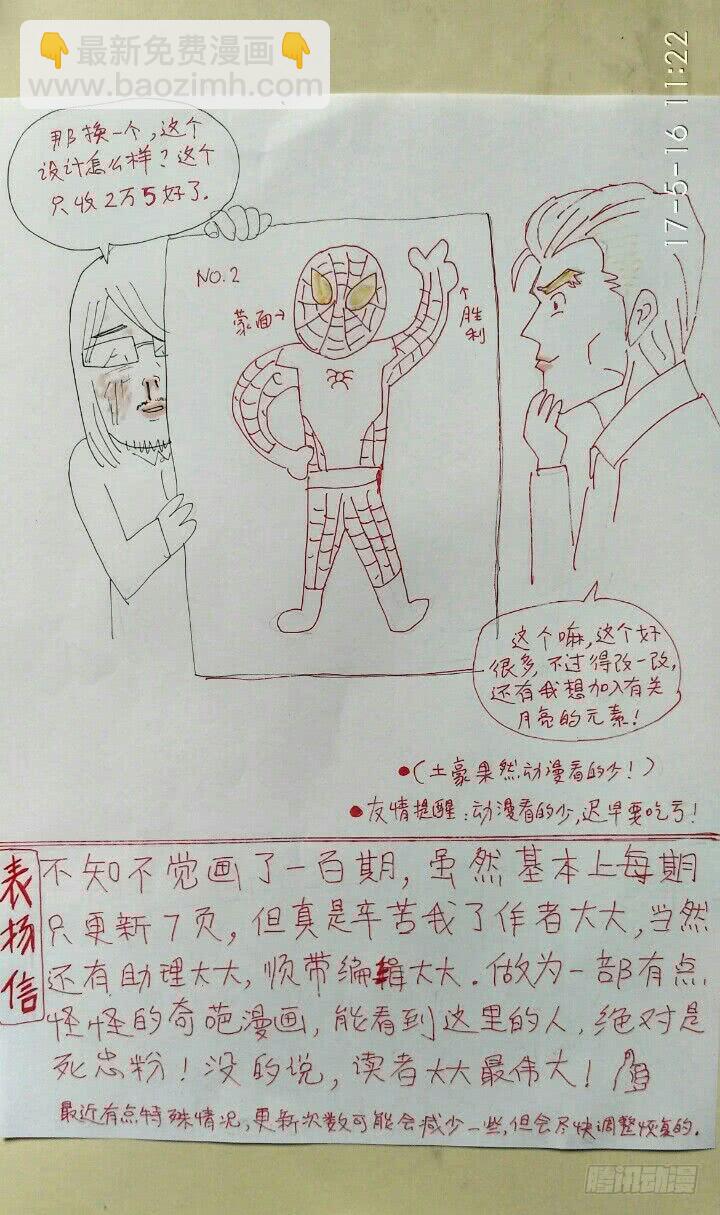 👇最新免费漫画👇
www.baozimh.com
17-5-16 11:22
那换一个,这个
设计怎么样?这个
只收2万5好了.
NO.2
蒙面→
胜利
这个嘛,这个好
很多,不过得改一改,
还有我想加入有关
月亮的元素!
•(土豪果然动漫看的少!)
•友情提醒:动漫看的少,迟早要吃亏!
表扬信
不知不觉画了一百期,虽然基本上每期
只更新7页,但真是辛苦我了作者大大,当然
还有助理大大,顺带编辑大大.做为一部有点
怪怪的奇葩漫画,能看到这里的人,绝对是
死忠粉!没的说,读者大大最伟大!
最近有点特殊情况,更新次数可能会减少一些,但会尽快调整恢复的.
腾讯动漫